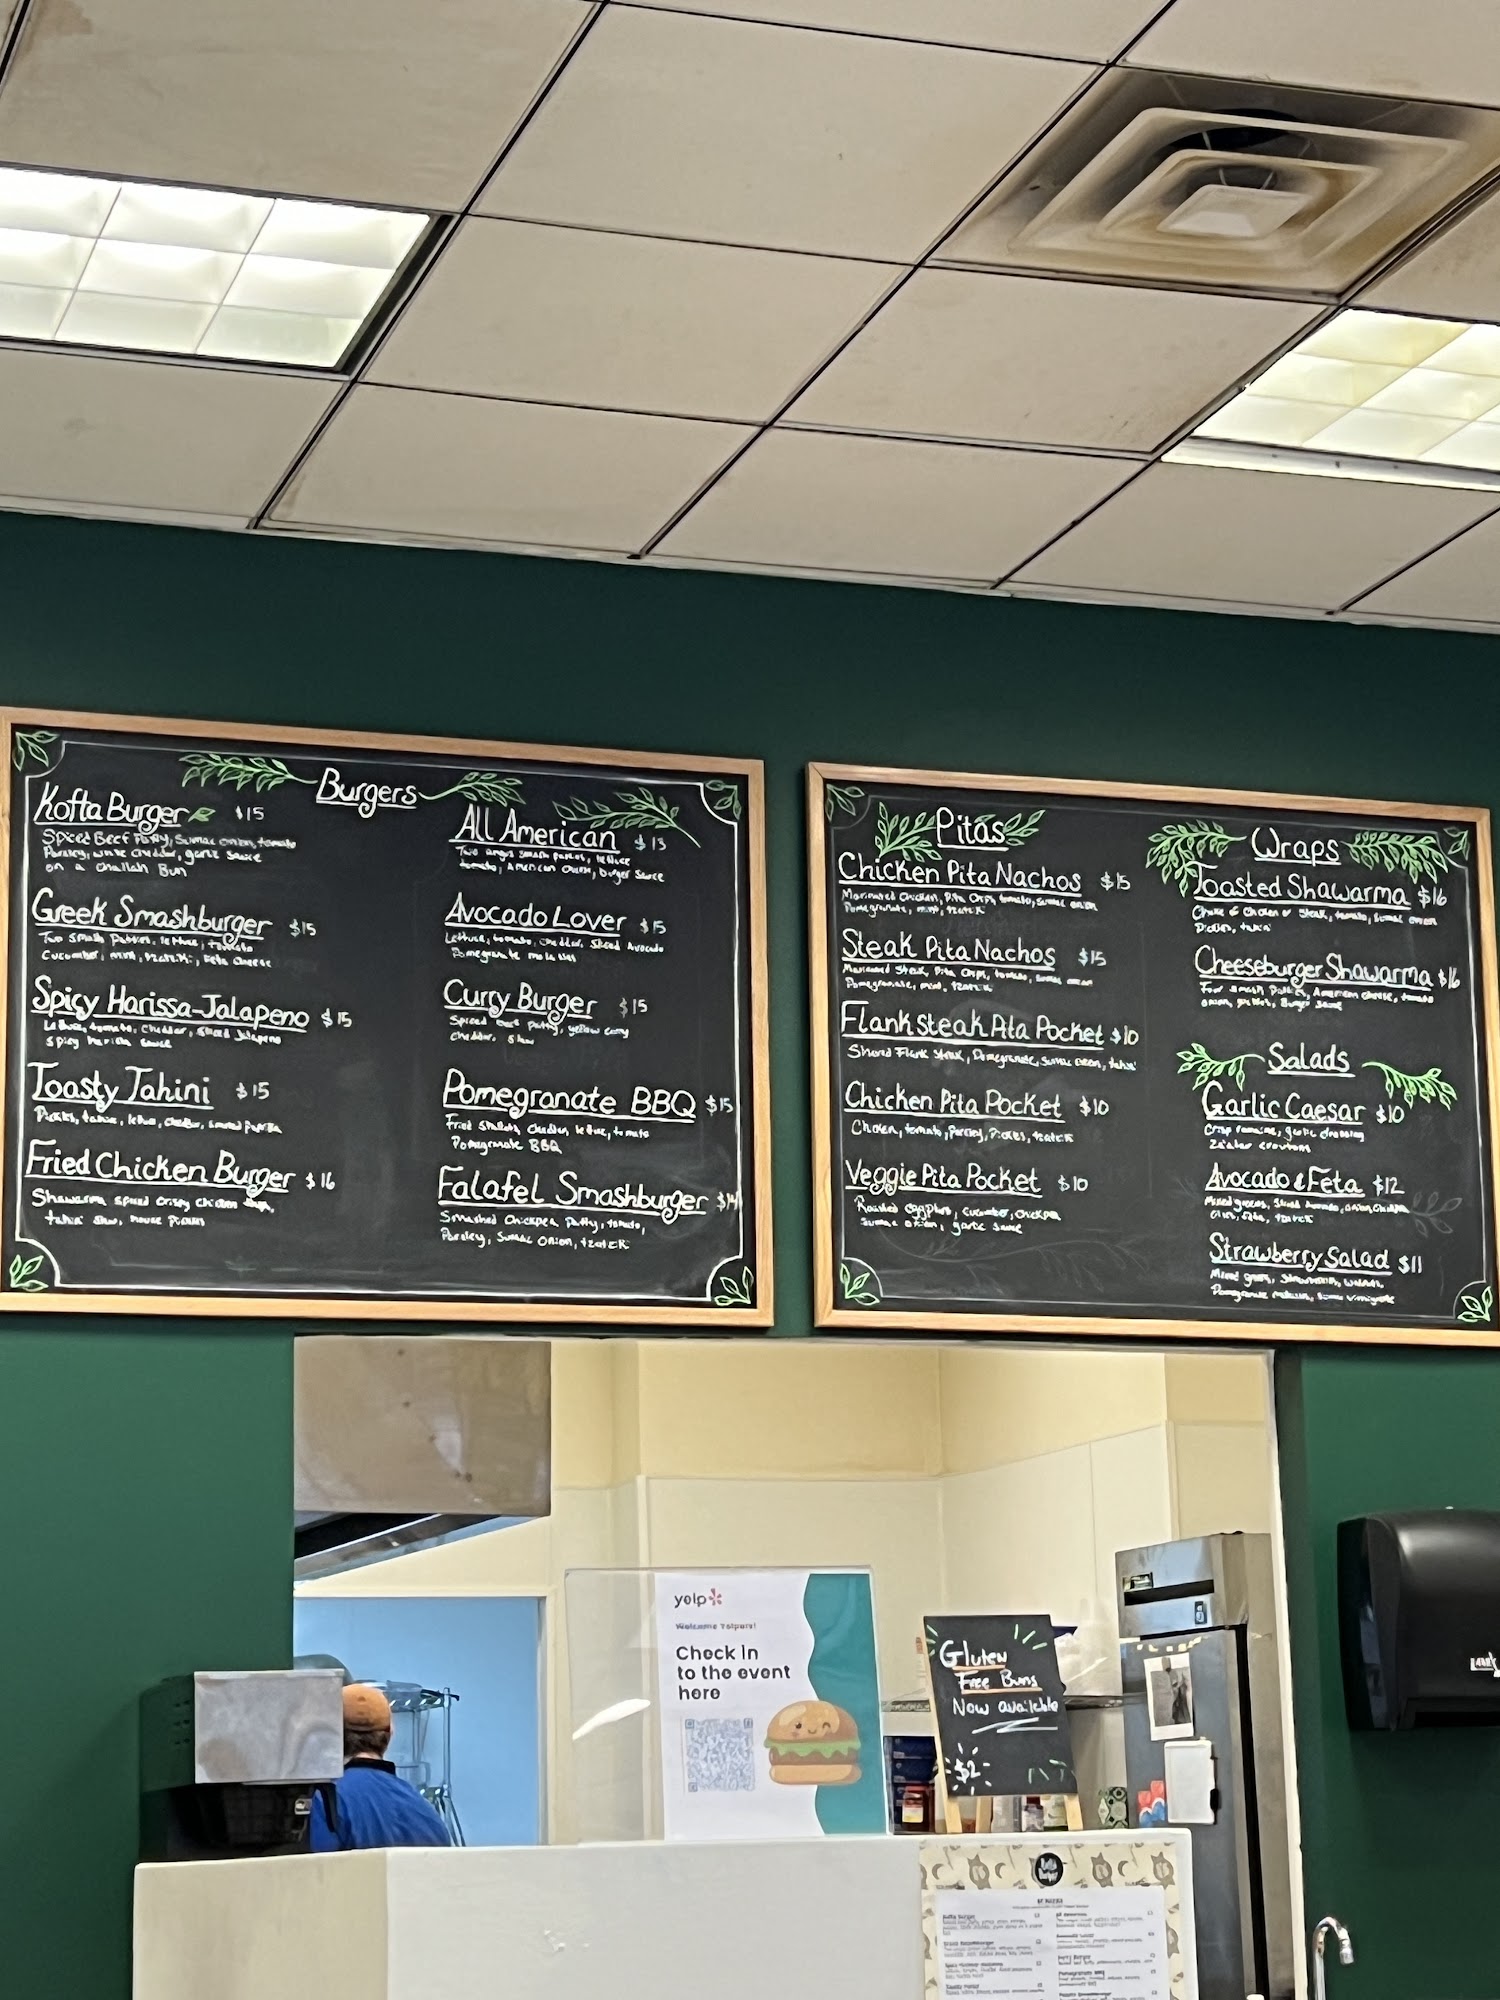 Burgers
Kofta Burger $15
Spiced Beef Patty, Sumac onion, tomato
Parsley, white cheddar, garlic sauce
on a Challah Bun
Greek Smashburger $15
Two smash patties, lettuce, tomato
Cucumber, mint, tzatziki, Feta Cheese
Spicy Harissa-Jalapeno $15
Lettuce, tomato, cheddar, sliced Jalapeno
Spicy harissa sauce
Toasty Tahini $15
Pickles, tahini, lettuce, cheddar, smoked paprika
Fried Chicken Burger $16
Shawarma spiced crispy chicken
tahini slaw, house Pickles
All American $13
Two angus smash patties, lettuce
tomato, American Cheese, burger Sauce
Avocado Lover $15
Lettuce, tomato, cheddar, sliced Avocado
Pomegranate molasses
Curry Burger $15
Spiced beef patty, yellow curry
Cheddar, slaw
Pomegranate BBQ $15
Fried Shallots, Cheddar, lettuce, tomato
Pomegranate BBQ
Falafel Smashburger $14
Smashed Chickpea Patty, tomato,
Parsley, Sumac Onion, tzatziki
Pitas
Chicken Pita Nachos $15
Marinated Chicken, Pita Chips, tomato, sumac onion
Pomegranate, mint, tzatziki
Steak Pita Nachos $15
Marinated Steak, Pita Chips, tomato, sumac onion
Pomegranate, mint, tzatziki
Flanksteak Pita Pocket $10
Shaved Flank Steak, Pomegranate, Sumac onion, tahini
Chicken Pita Pocket $10
Chicken, tomato, Parsley, Pickles, tzatziki
Veggie Pita Pocket $10
Roasted eggplant, cucumber, chickpea
Sumac onion, garlic sauce
Wraps
Toasted Shawarma $16
Choice of Chicken or Steak, tomato, sumac onion
Pickles, tahini
Cheeseburger Shawarma $16
Four Smash Patties, American cheese, tomato
onion, pickles, Burger Sauce
Salads
Garlic Caesar $10
Crisp romaine, garlic dressing
Za'atar croutons
Avocado & Feta $12
Mixed greens, Sliced Avocado, onion, Chickpea
feta, tzatziki
Strawberry Salad $11
Mixed greens, Strawberries, walnuts,
Pomegranate Molasses, Sumac vinaigrette
yelp
Welcome Yelpers!
Check in
to the event
here
Gluten
Free Buns
Now available
$2